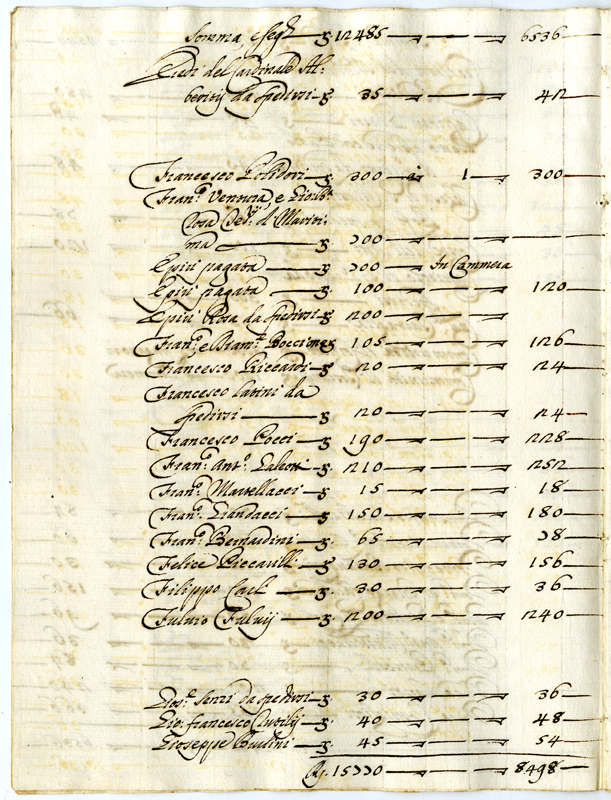 Somma, e segue — 12485 — 6536
Eredi del Cardinale Al:
beritij da spedirsi — 35 — 42
Francesco Polidori — 300 — 1 — 300
Fran.º Ventura, e
Rosa d. Marit:
ma — 300 —
E piu pagata — 300 — In Cammera
E piu pagata — 100 — 120
E piu Rosa da spedirsi — 200 —
Fran.º, e Bocciones — 105 — 126
Francesco Riccardi — 20 — 24
Francesco latini da
spedirsi — 20 — 24
Francesco Pocci — 190 — 228
Fran.º Ant.º — 210 — 252
Fran.º Martellacci — 15 — 18
Fran.º Liandacci — 150 — 180
Fran.º Bernardini — 65 — 38
Felice Piccarill. — 130 — 156
Filippo — 30 — 36
Fulvio Fulvij — 200 — 240
Gios.e Senzi da spedirsi — 30 — 36
Gio: francesco — 40 — 48
Gioseppe Budini — 45 — 54
15330 — 8498